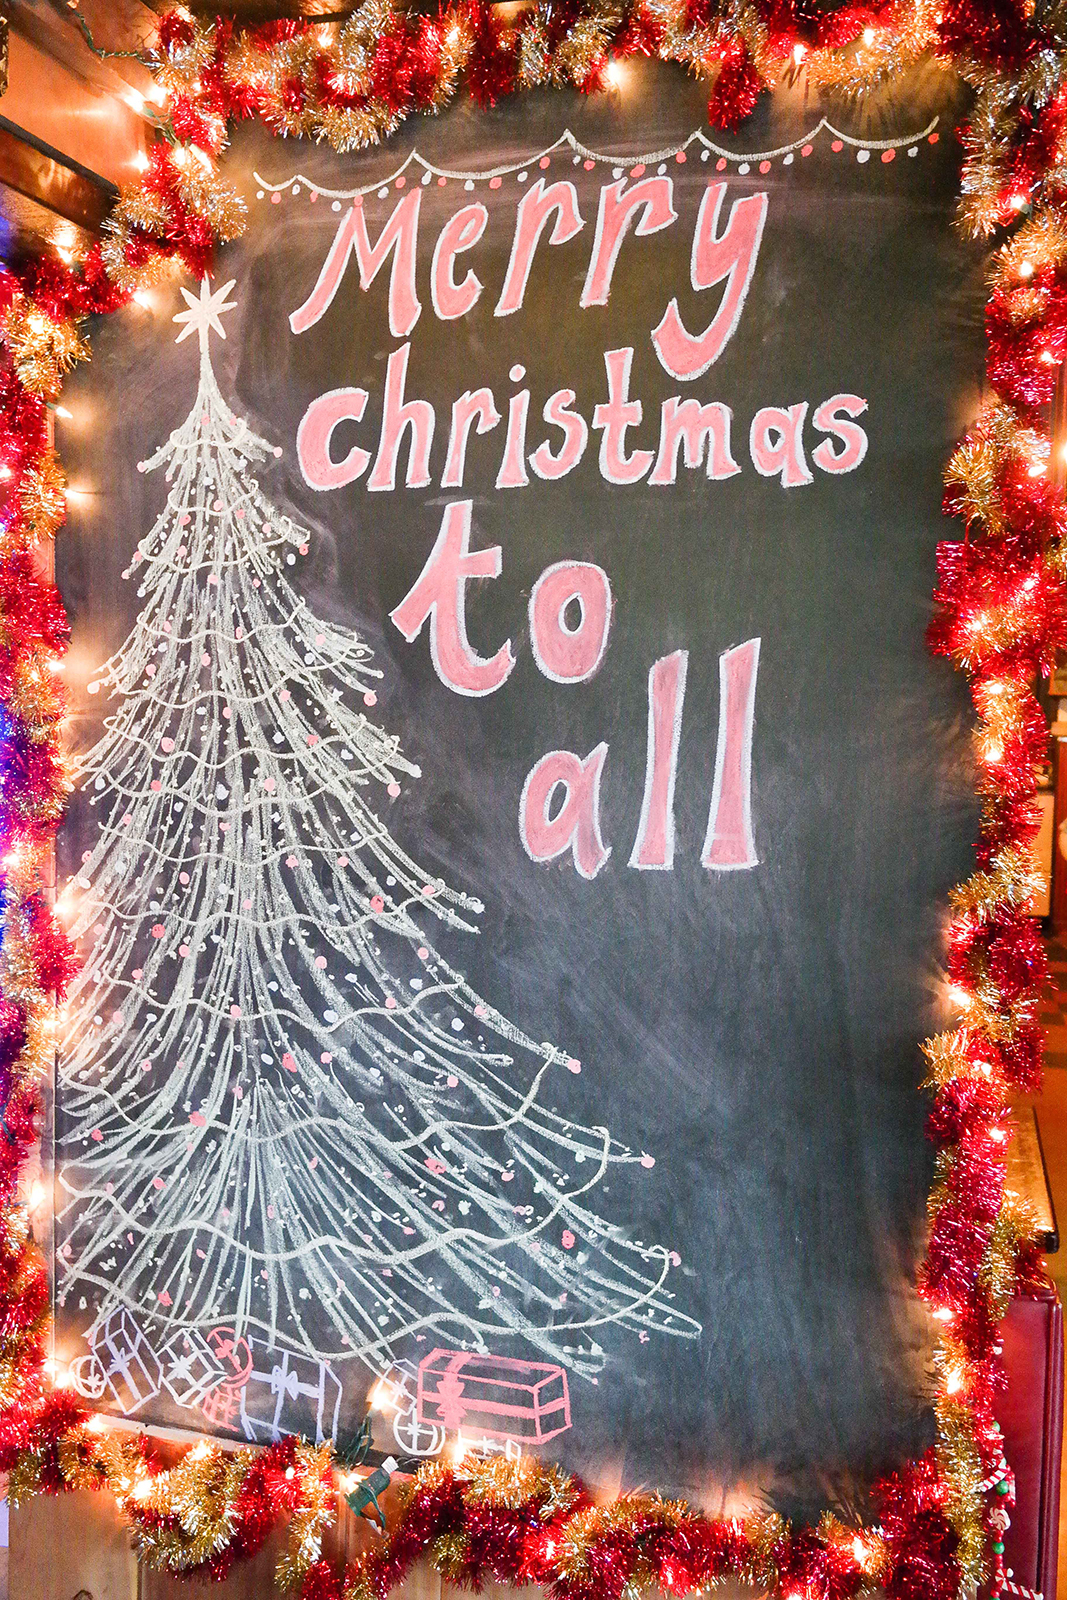 Merry
christmas
to
all